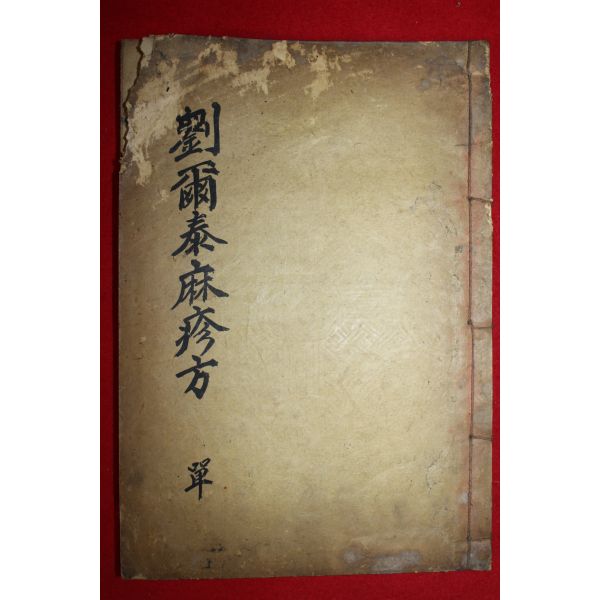 劉爾泰麻疹方
單